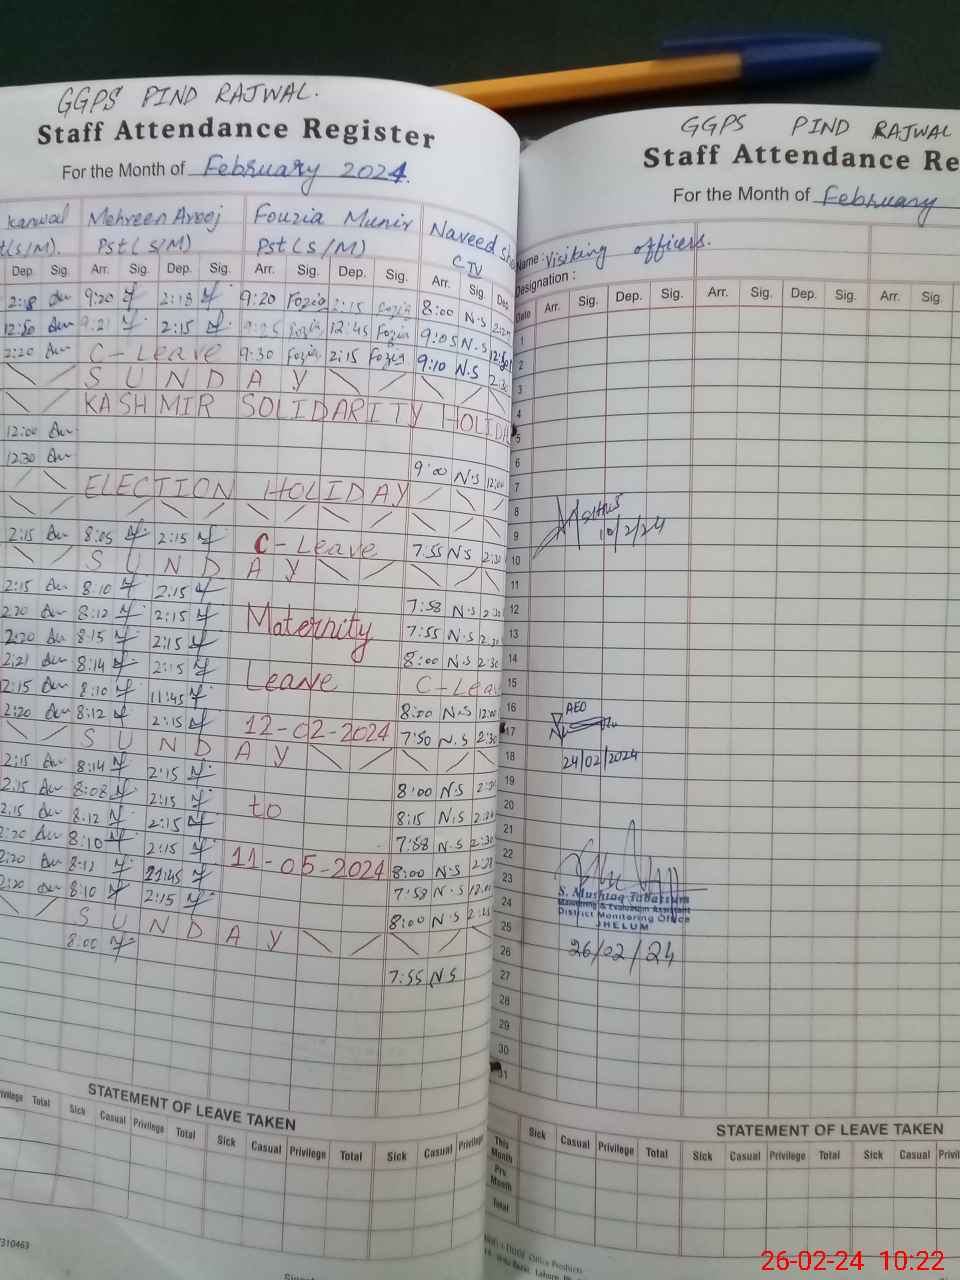 GGPS PIND RAJWAL.
Staff Attendance Register
For the Month of February 2024.
Kanwal Mehreen Arooj Fouzia Munir Naveed
t(s/M). Pst(s/M) Pst(s/M) C IV
Dep. Sig. Arr. Sig. Dep. Sig. Arr. Sig. Dep. Sig. Arr. Sig. Dep.
2:18 9:20 2:18 9:20 Fozia 2:15 Fozia 8:00 N.S
12:50 9:21 2:15 9:25 Fozia 12:45 Fozia 9:05 N.S 12:50
2:20 C-Leave 9:30 Fozia 2:15 Fozia 9:10 N.S 2:30
SUNDAY
KASHMIR SOLIDARITY HOLIDA
12:00
12:30 9:00 N.S 12:00
ELECTION HOLIDAY
2:15 8:05 2:15 C-Leave 7:55 N.S 2:30
SUNDAY
2:15 8:10 2:15 7:58 N.S 2:30
2:20 8:12 2:15 Maternity 7:55 N.S
2:20 8:15 2:15 8:00 N.S 2:30
2:21 8:14 2:15 Leave C-Lea
2:15 8:10 11:45 8:00 N.S 12:00
2:20 8:12 2:15 12-02-2024 7:50 N.S 2:30
SUNDAY
2:15 8:14 2:15 8:00 N.S
2:15 8:08 2:15 to 8:15 N.S
2:15 8:12 2:15 7:58 N.S 2:30
2:20 8:10 2:15 11-05-2024 8:00 N.S
2:20 8:11 11:45 7:59 N.S
2:20 8:10 2:15 8:00 N.S
SUNDAY
8:00 7:55 N.S
STATEMENT OF LEAVE TAKEN
Privilege Total Sick Casual Privilege Total Sick Casual Privilege Total Sick Casual Privilege
310463
GGPS PIND RAJWAL
Staff Attendance Re
For the Month of February
Name : Visiting officers.
Designation :
Date Arr. Sig. Dep. Sig. Arr. Sig. Dep. Sig. Arr. Sig.
1
2
3
4
5
6
7
8
9
10/2/24
10
11
12
13
14
15
16
AEO
17
18
24/02/2024
19
20
21
22
23
S. Mushtaq Tabassum
24
Monitoring & Evaluation Assistant
District Monitoring Office
25
JHELUM
26
26/02/24
27
28
29
30
31
STATEMENT OF LEAVE TAKEN
This Month Sick Casual Privilege Total Sick Casual Privilege Total Sick Casual Privil
Pre Month
Total
Office Products
26-02-24 10:22